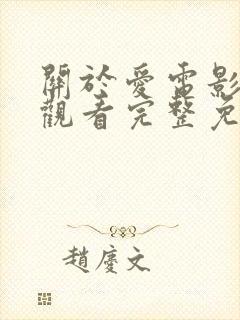 關於愛電影
觀看完整免
趙慶文